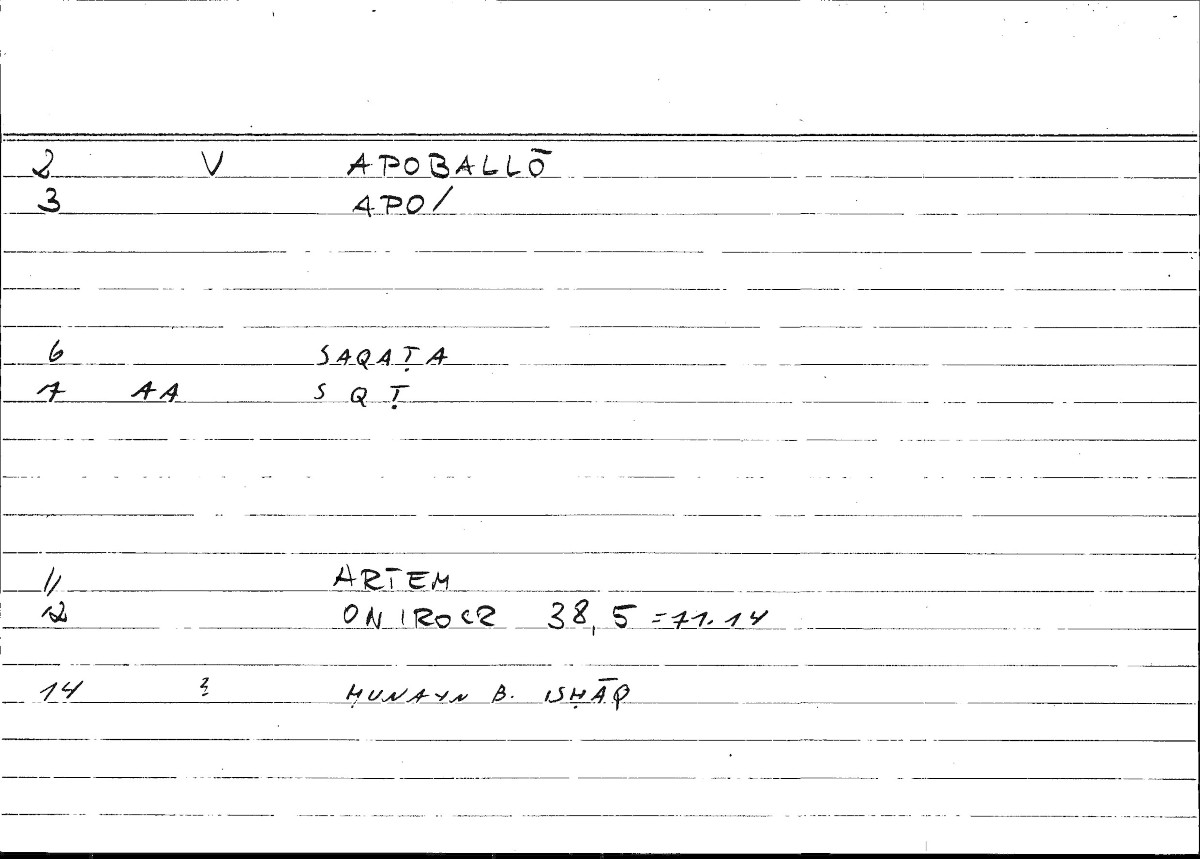 2 V APOBALLŌ
3 APO/
6 SAQAṬA
7 AA S Q Ṭ
11 ARTEM
12 ONIROCR 38,5 = 71.14
14 ḤUNAYN B. ISḤĀQ